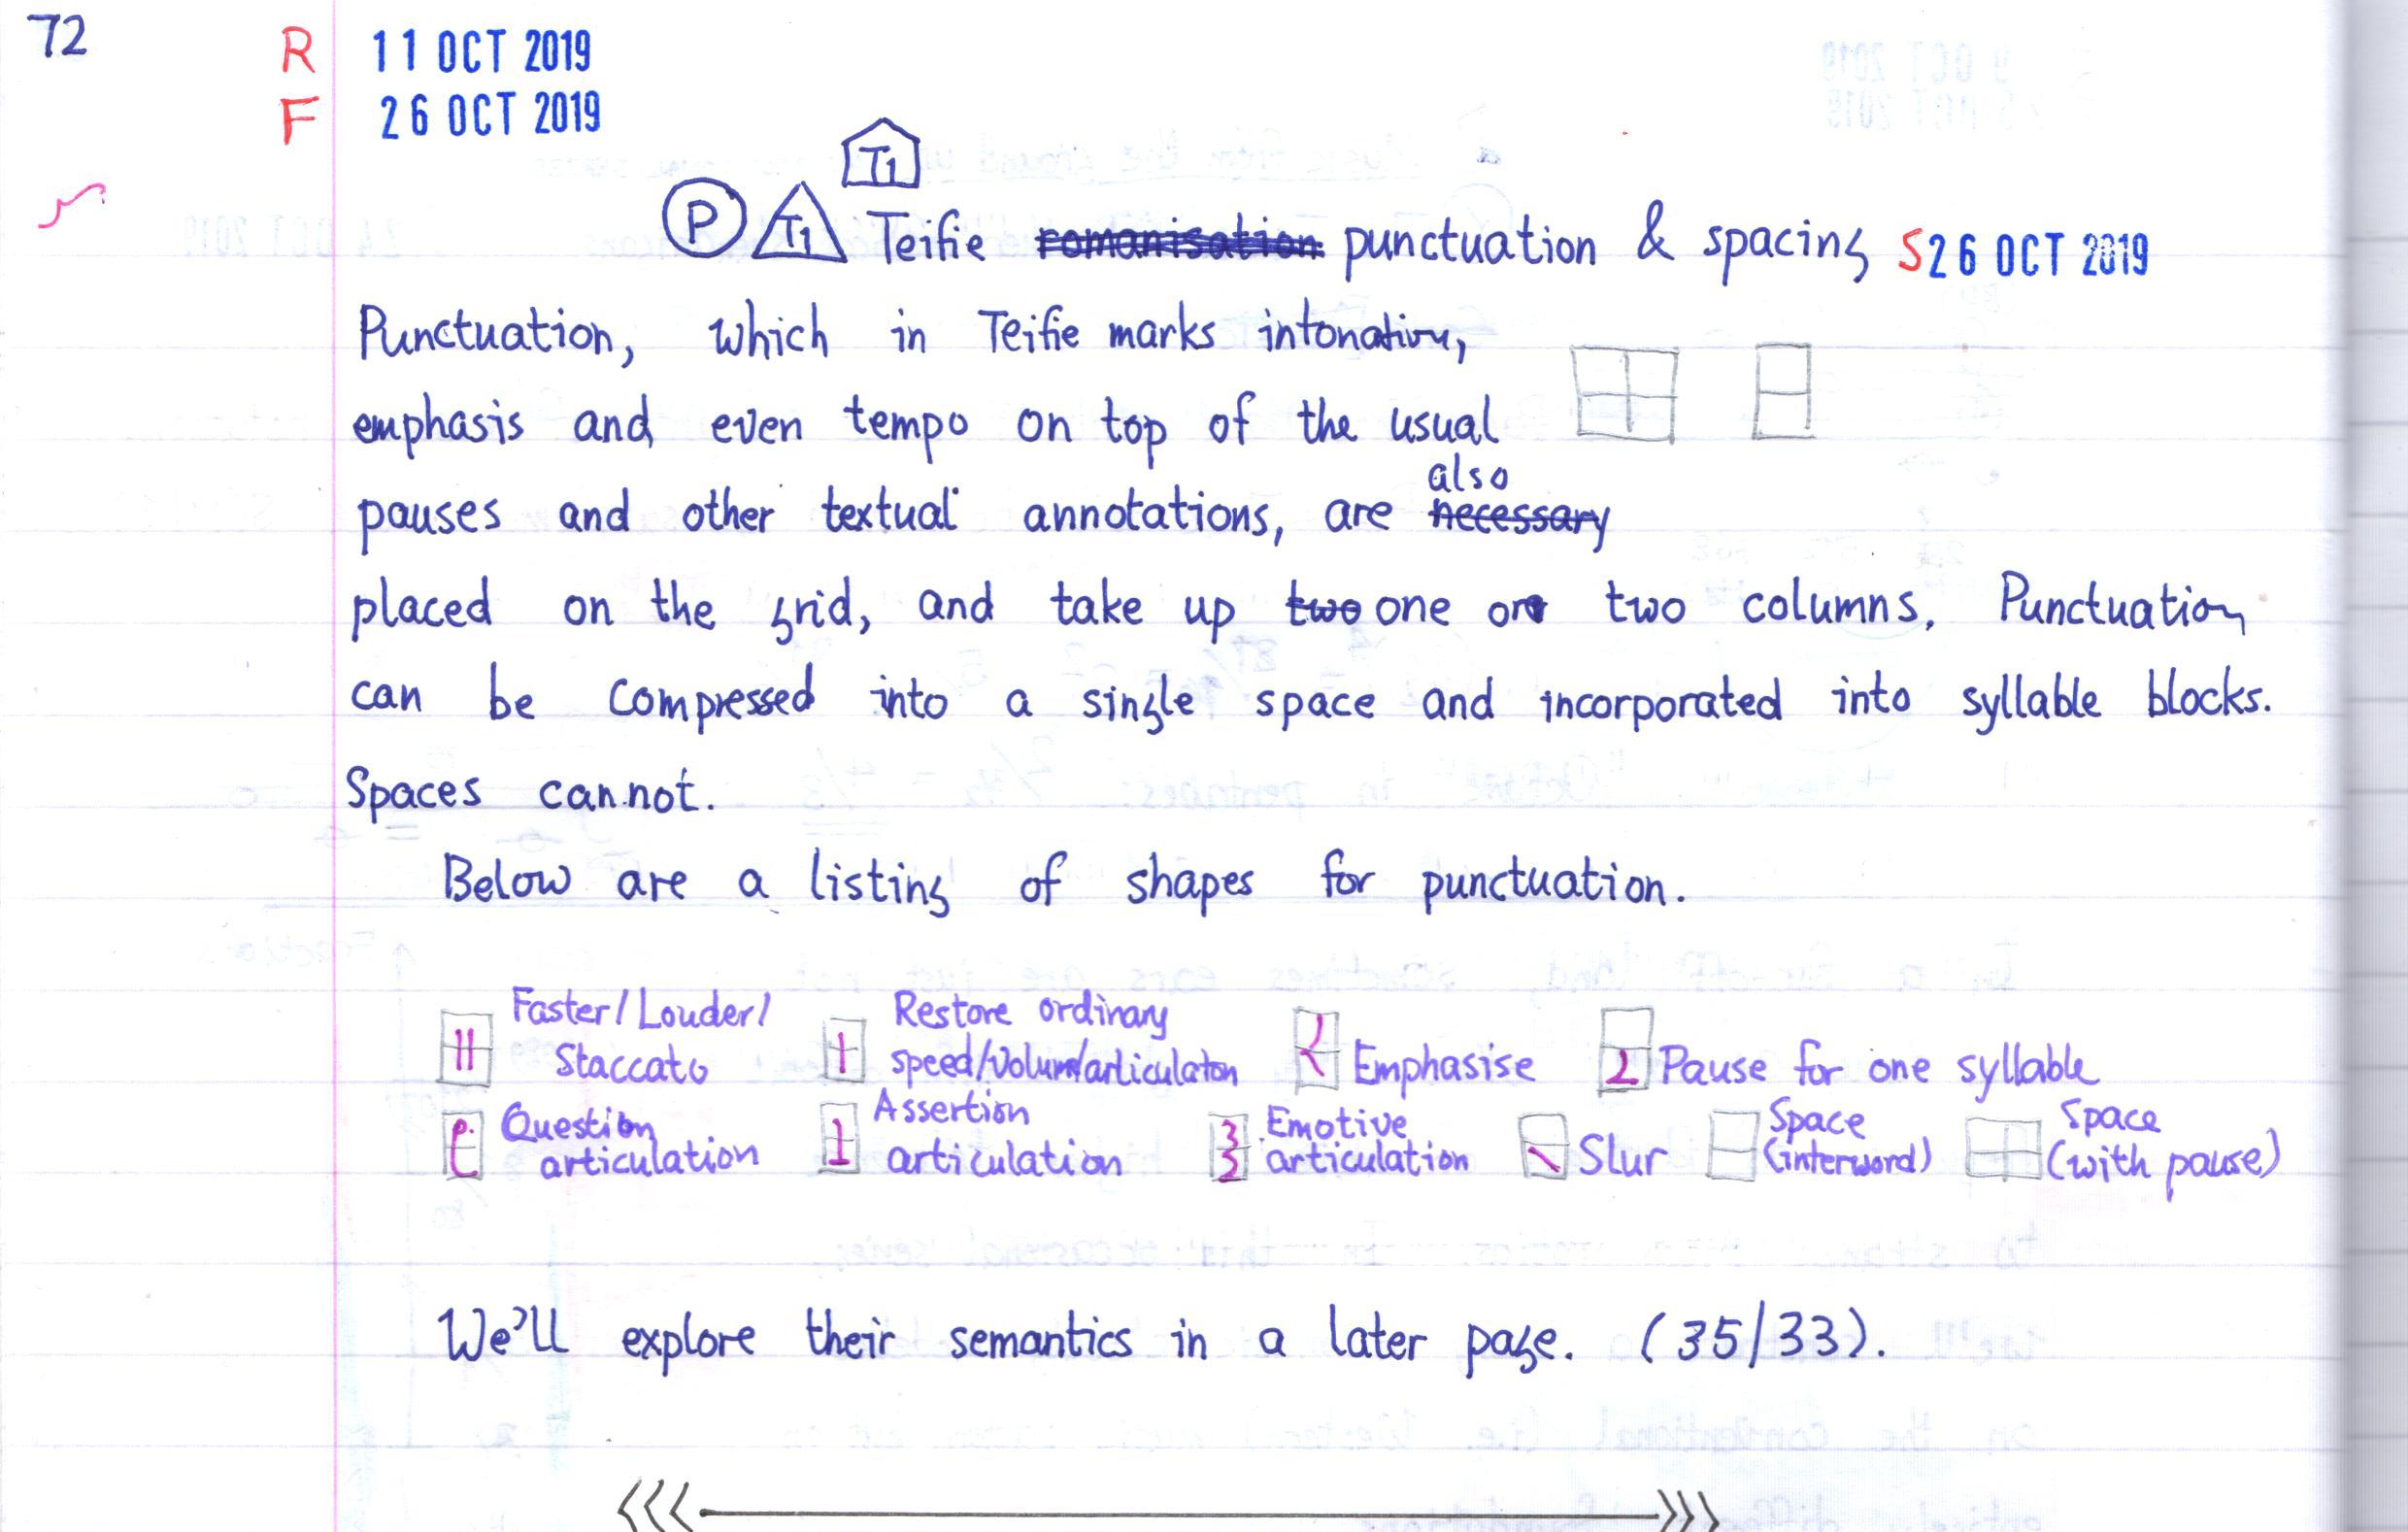 72
R 11 OCT 2019
F 26 OCT 2019
T1
P T1 Teifie romanisation punctuation & spacing S 26 OCT 2019
Punctuation, which in Teifie marks intonation,
emphasis and even tempo on top of the usual
also
pauses and other textual annotations, are necessary
placed on the grid, and take up two one or two columns. Punctuation
can be compressed into a single space and incorporated into syllable blocks.
Spaces cannot.
Below are a listing of shapes for punctuation.
Faster/Louder/ Restore ordinary
Staccato speed/volum/articulaton Emphasise Pause for one syllable
Question Assertion Emotive Space Space
articulation articulation articulation Slur (interword) (with pause)
We'll explore their semantics in a later page. (35/33).